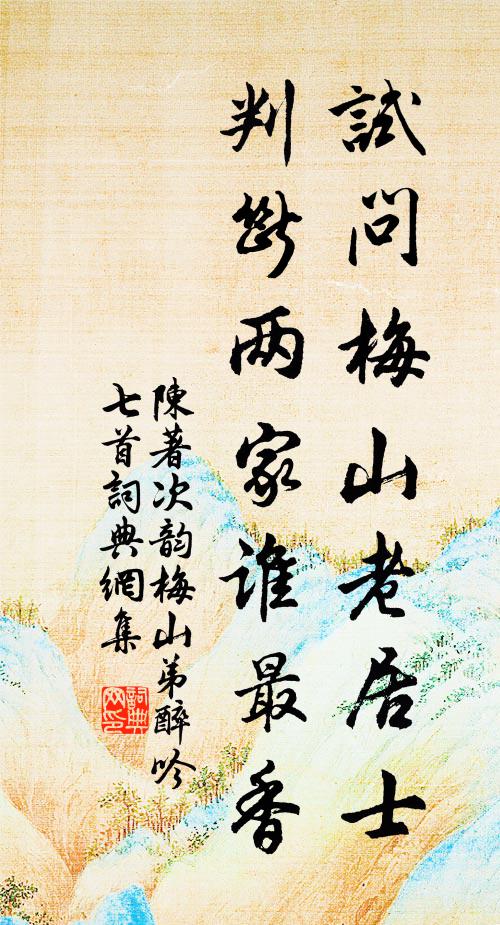 試問梅山老居士
判斷两家誰最香
陳著次韵梅山弟醉吟
七首詞典網集
詞典
网印